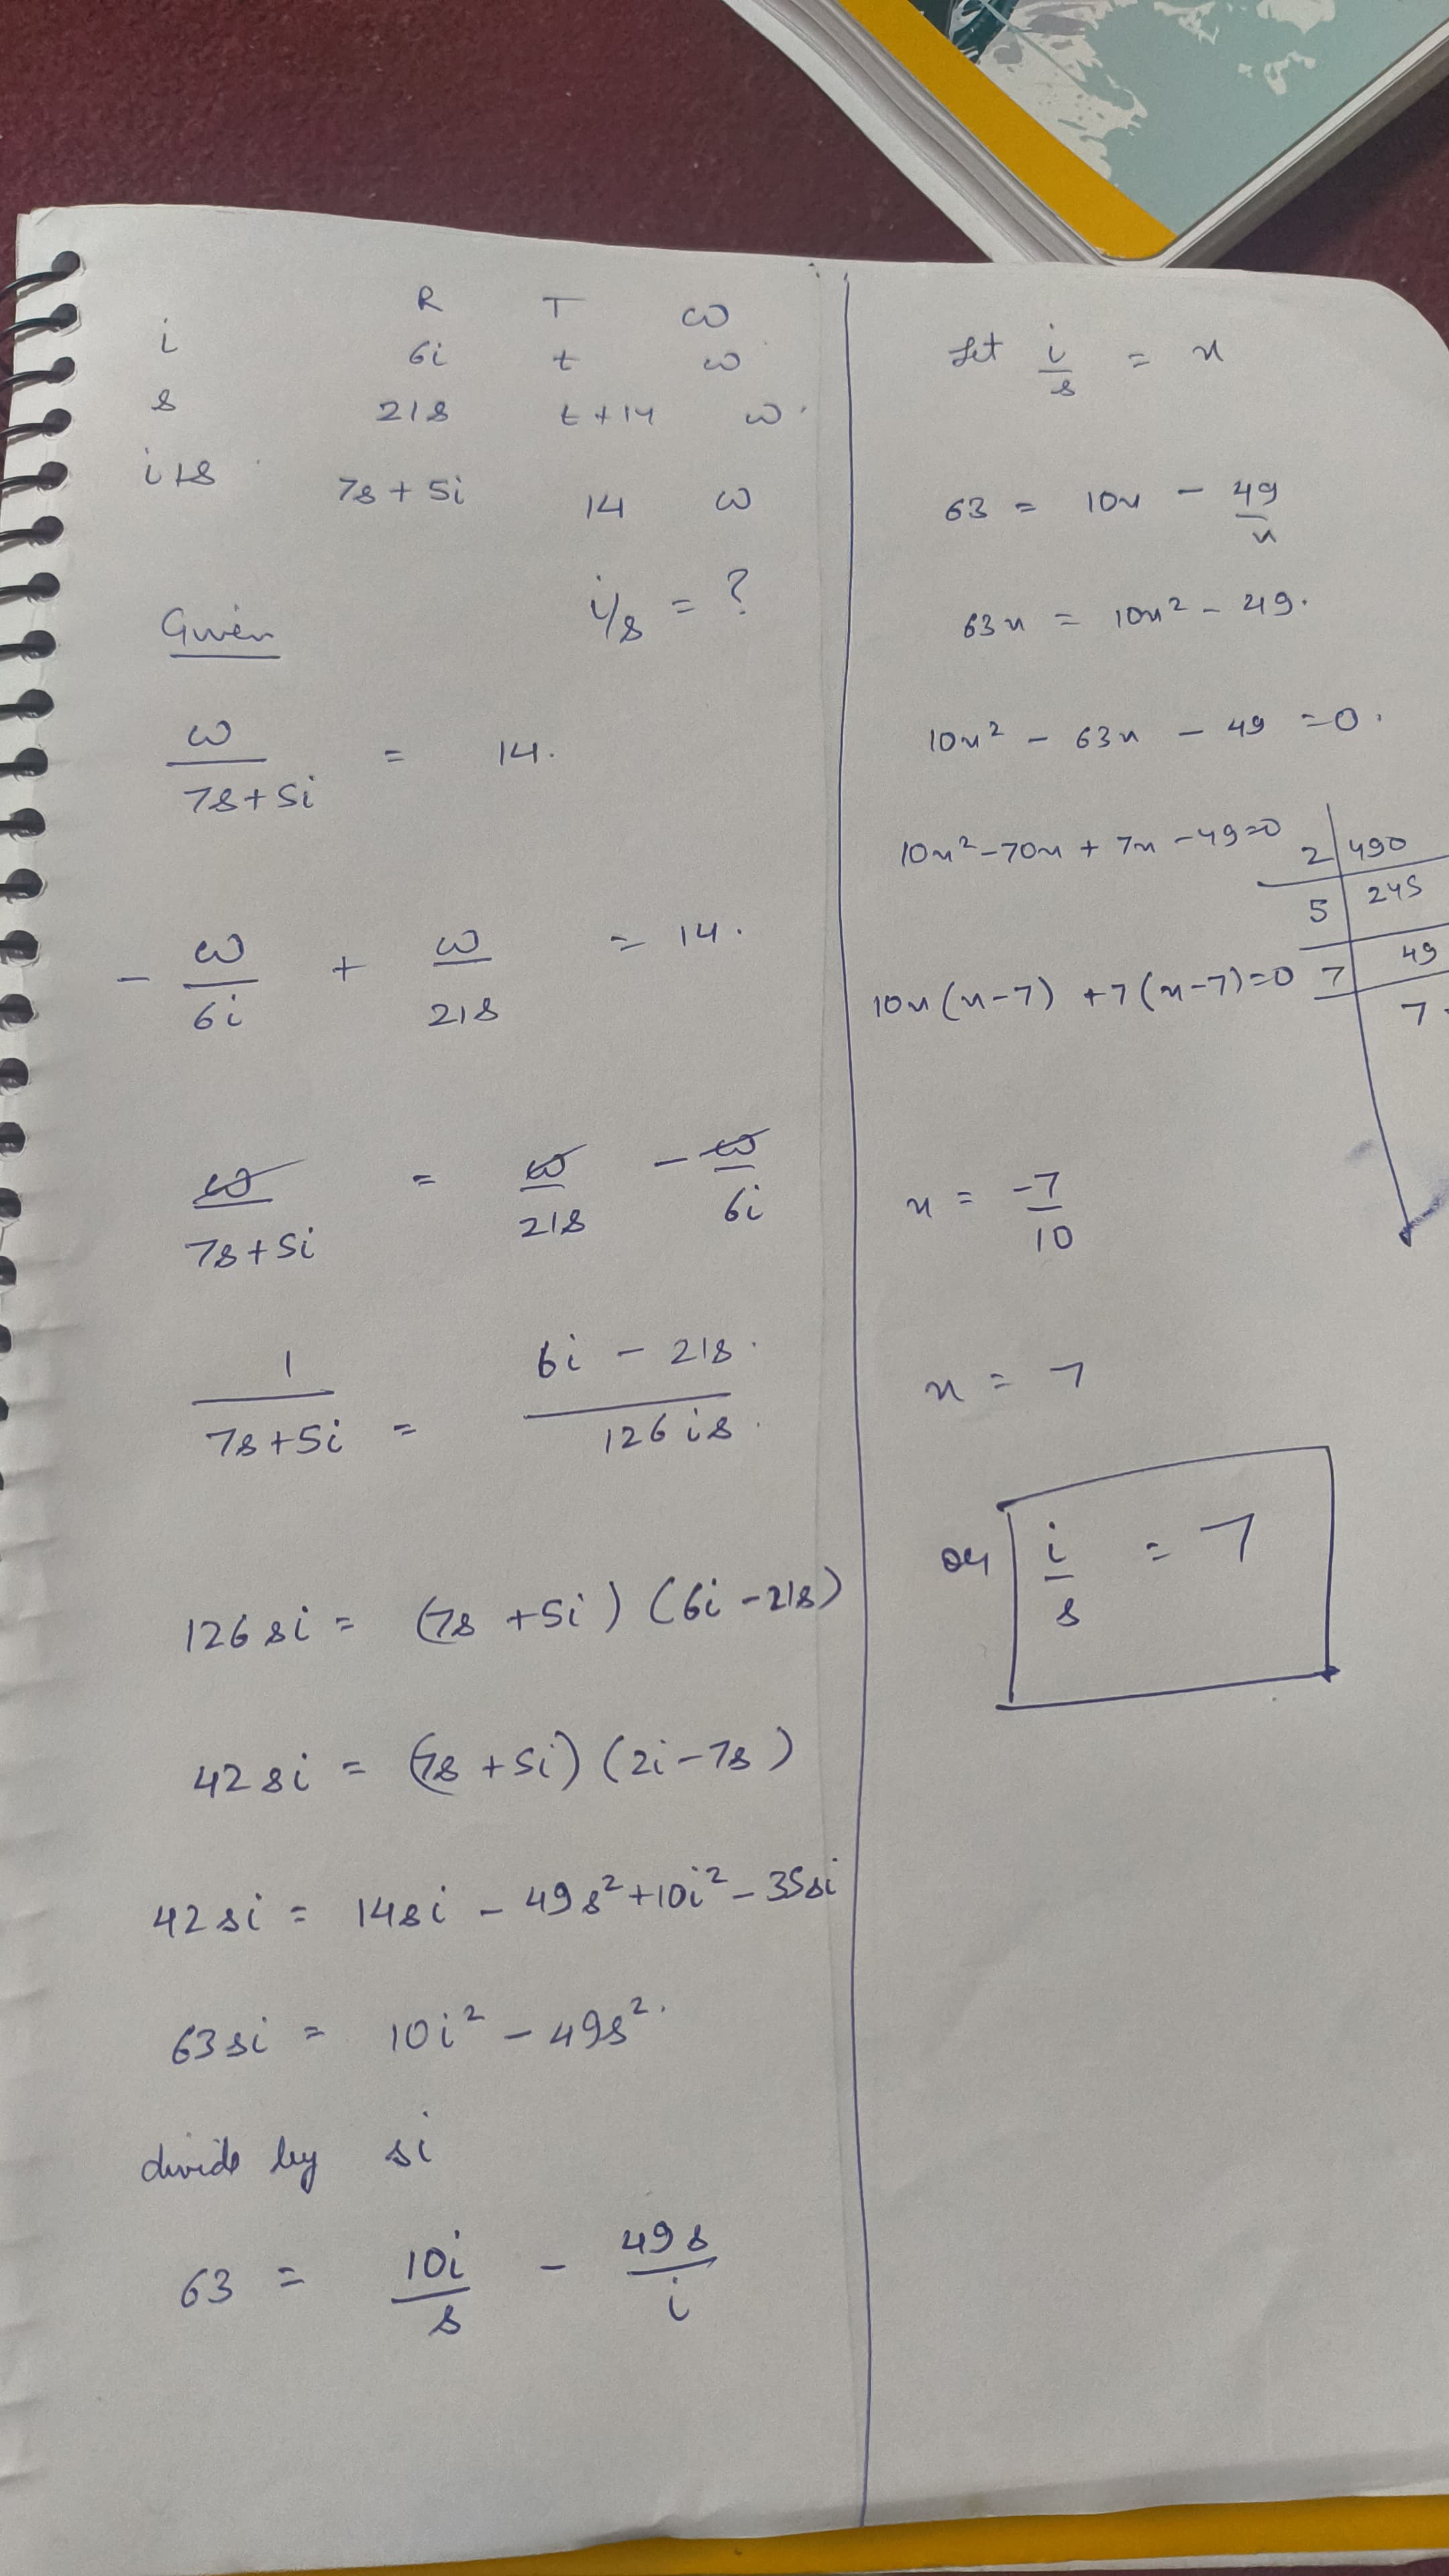 R T w
i 6i t w
s 21s t+14 w.
i+s 7s + 5i 14 w
i/s = ?
Given
w/(7s+5i) = 14.
- w/6i + w/21s = 14.
w/(7s+5i) = w/21s - w/6i
1/(7s+5i) = (6i - 21s.)/(126 is.)
126 si = (7s + 5i) (6i - 21s)
42 si = (7s + 5i) (2i - 7s)
42 si = 14si - 49s² + 10i² - 35si
63 si = 10i² - 49s².
divide by si
63 = 10i/s - 49s/i
Let i/s = x
63 = 10x - 49/x
63x = 10x² - 49.
10x² - 63x - 49 = 0.
10x² - 70x + 7x - 49 = 0
2 | 490
5 | 245
7 | 49
7.
10x (x-7) + 7 (x-7) = 0
x = -7/10
x = 7
or i/s = 7